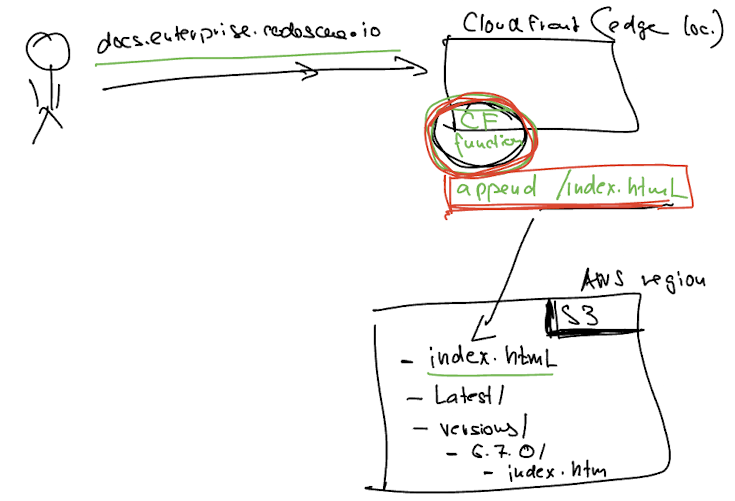 docs.enterprise.redoscan.io
CloudFront (edge loc.)
CF
function
append /index.html
AWS region
S3
- index.html
- Latest/
- versions/
- 6.7.0/
- index.htm